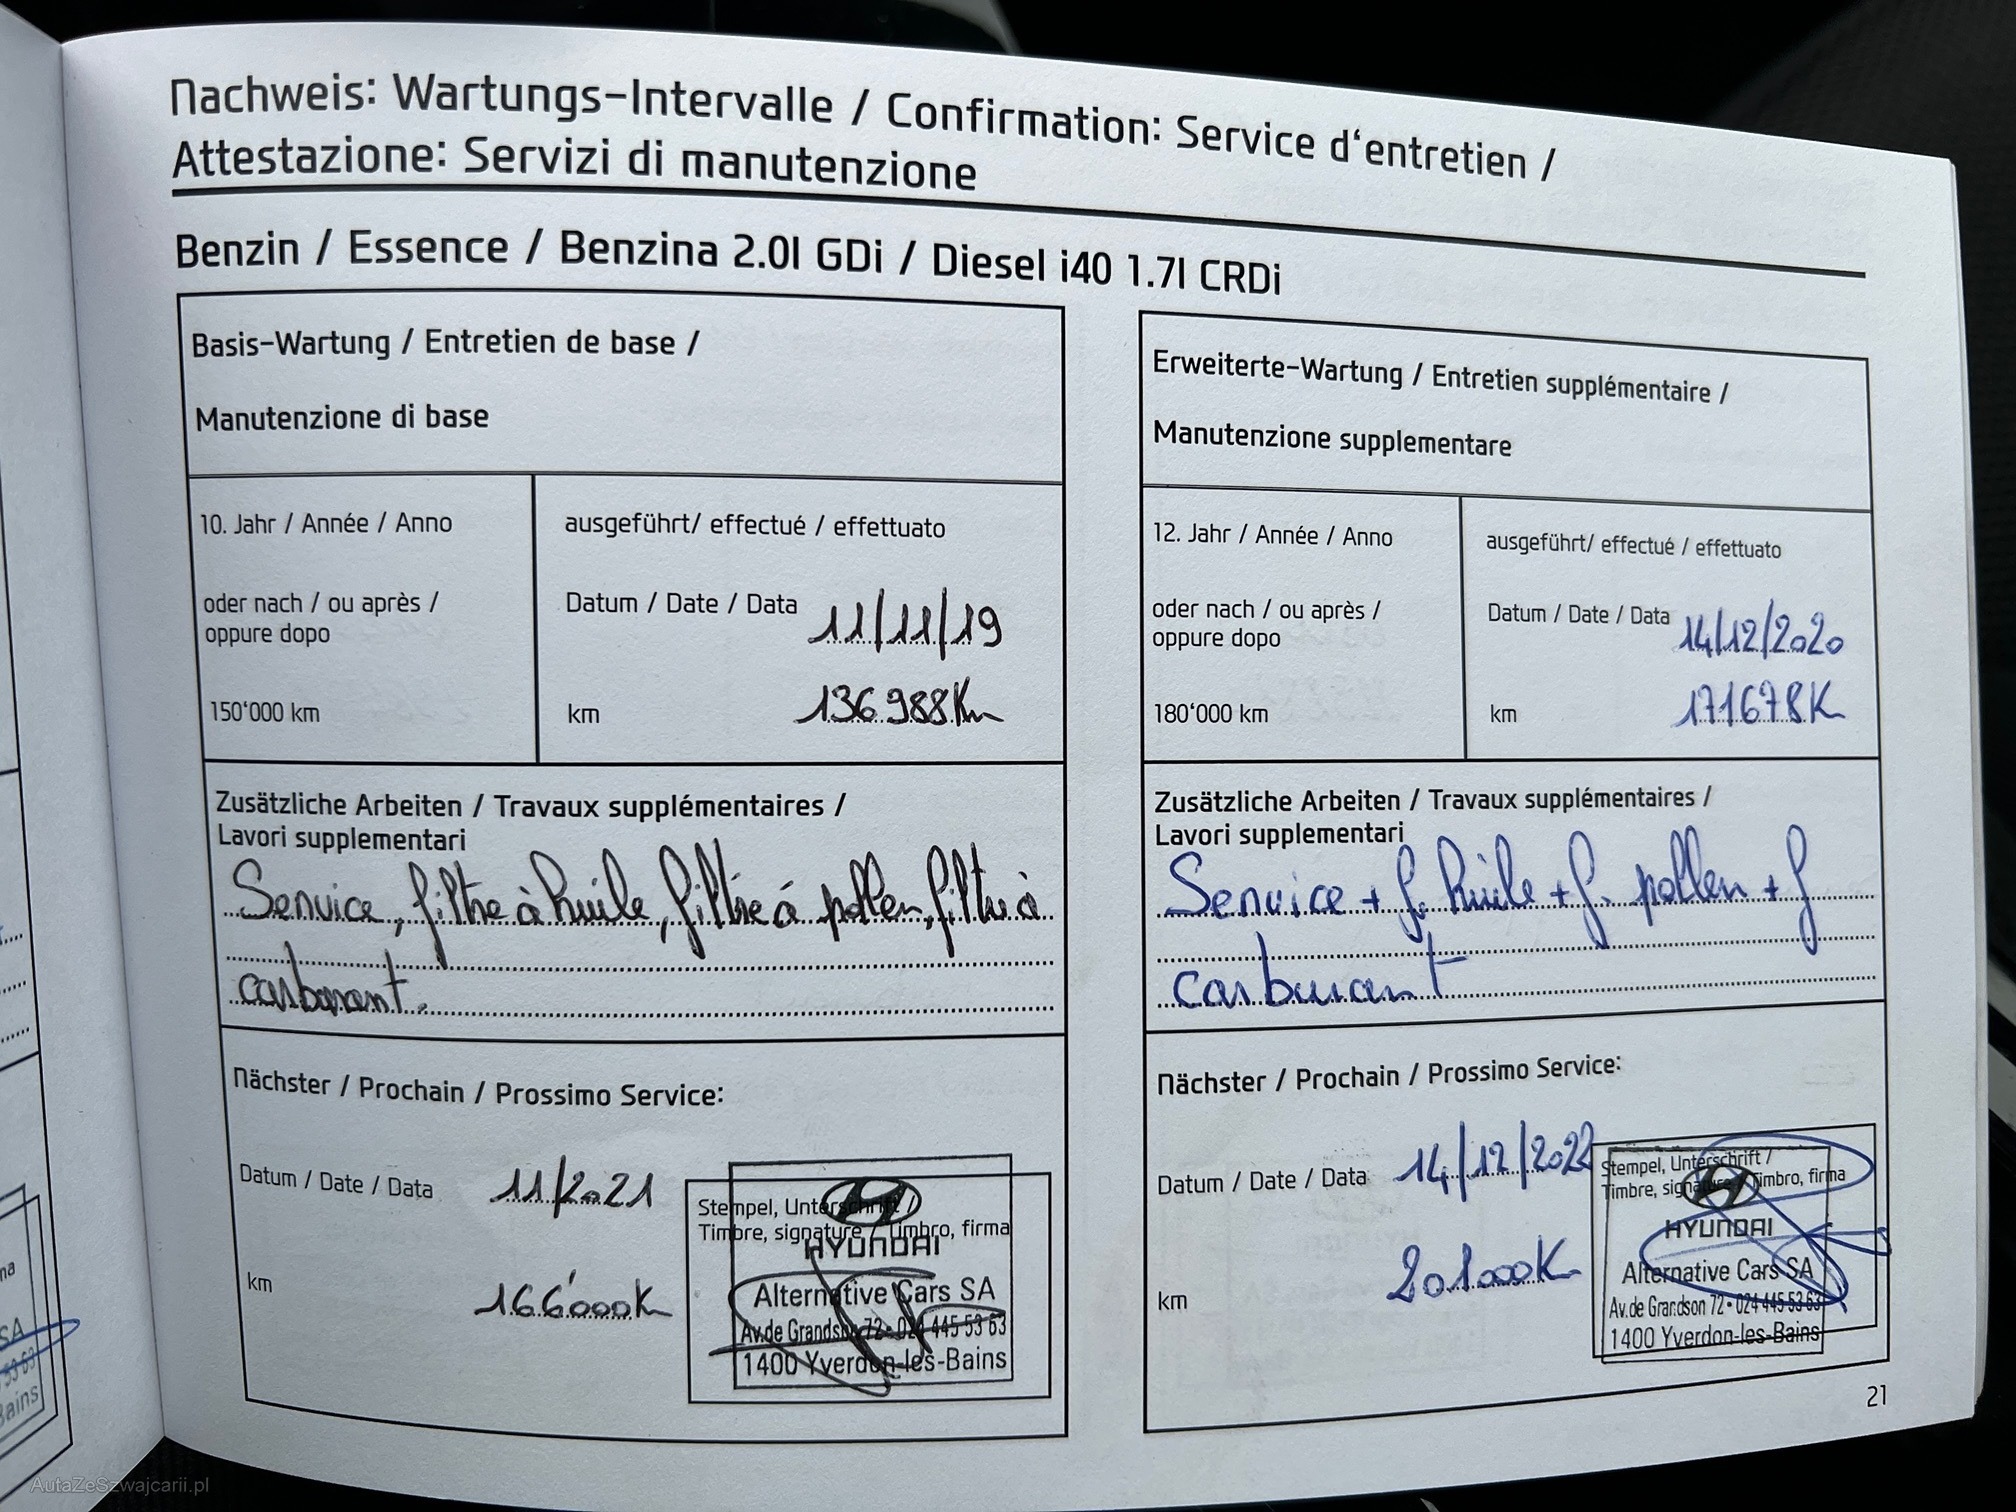 Nachweis: Wartungs-Intervalle / Confirmation: Service d'entretien /
Attestazione: Servizi di manutenzione
Benzin / Essence / Benzina 2.0l GDi / Diesel i40 1.7l CRDi
Basis-Wartung / Entretien de base /
Manutenzione di base
10. Jahr / Année / Anno
oder nach / ou après /
oppure dopo
150'000 km
ausgeführt/ effectué / effettuato
Datum / Date / Data 11/11/19
km 136988Km
Zusätzliche Arbeiten / Travaux supplémentaires /
Lavori supplementari
Service, filtre à huile, filtre à pollen, filtre à
carburant.
Nächster / Prochain / Prossimo Service:
Datum / Date / Data 11/2021
km 166'000K
Stempel, Unterschrift /
Timbre, signature / Timbro, firma
HYUNDAI
Alternative Cars SA
Av.de Grandson 72 • 024 445 53 63
1400 Yverdon-les-Bains
Erweiterte-Wartung / Entretien supplémentaire /
Manutenzione supplementare
12. Jahr / Année / Anno
oder nach / ou après /
oppure dopo
180'000 km
ausgeführt/ effectué / effettuato
Datum / Date / Data 14/12/2020
km 171678K
Zusätzliche Arbeiten / Travaux supplémentaires /
Lavori supplementari
Service + f. huile + f. pollen + f
carburant
Nächster / Prochain / Prossimo Service:
Datum / Date / Data 14/12/2022
km 201000K
Stempel, Unterschrift /
Timbre, signature / Timbro, firma
HYUNDAI
Alternative Cars SA
Av.de Grandson 72 • 024 445 53 63
1400 Yverdon-les-Bains
21
AutaZeSzwajcarii.pl